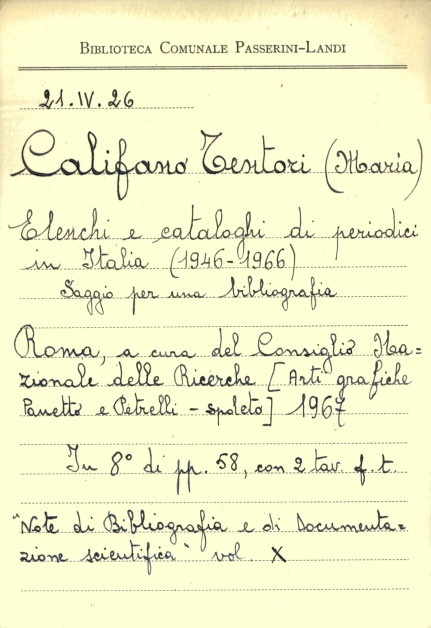 BIBLIOTECA COMUNALE PASSERINI-LANDI
21.IV.26
Califano Tentori (Maria)
Elenchi e cataloghi di periodici
in Italia (1946-1966)
Saggio per una bibliografia
Roma, a cura del Consiglio Na=
zionale delle Ricerche [Arti grafiche
Panetto e Petrelli - Spoleto] 1967
In 8° di pp. 58, con 2 tav. f. t.
"Note di Bibliografia e di Documenta=
zione scientifica" vol. X